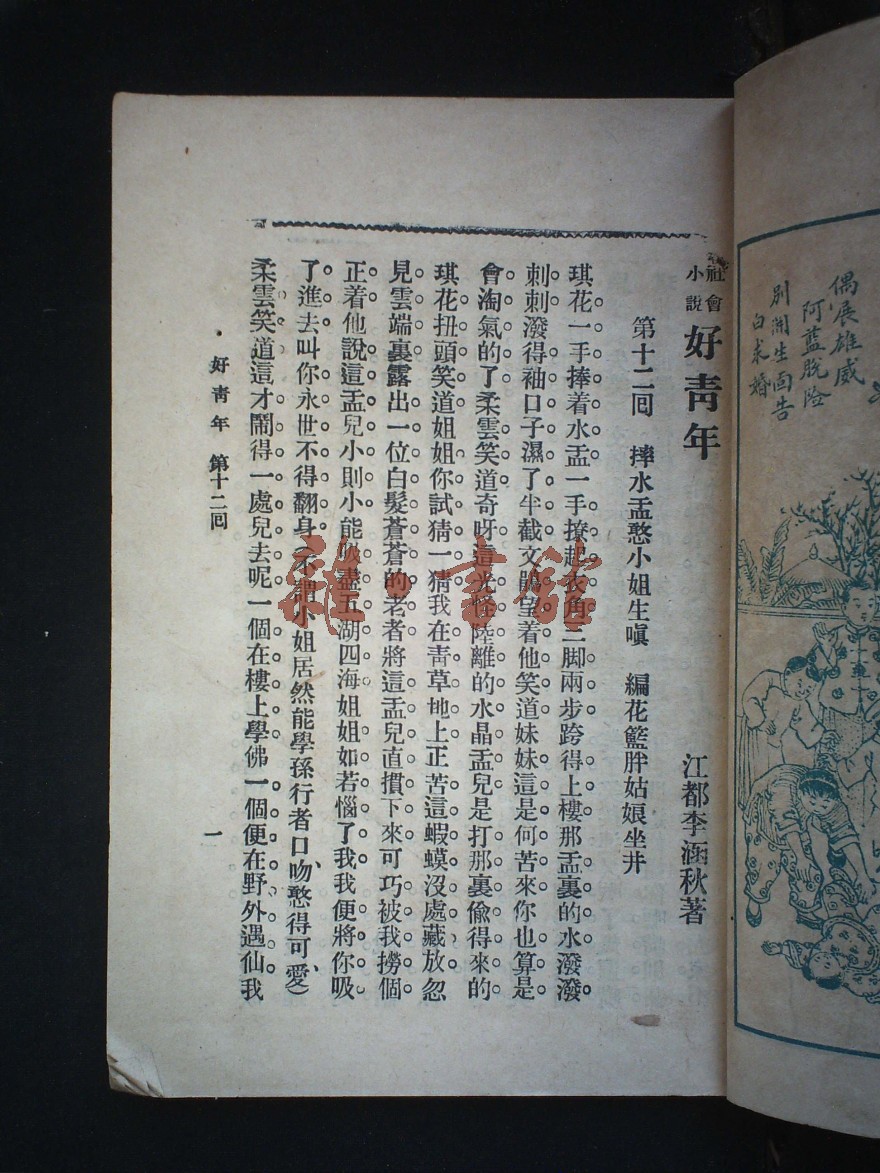 偶展雄威
阿藍脫險
別開生面告
白求婚
社會小說 好靑年
江都李涵秋著
第十二囘 摔水盂憨小姐生嗔 編花籃胖姑娘坐井
琪花一手捧着水盂一手撩起衣角三脚兩步跨得上樓那盂裏的水潑潑
刺刺潑得袖口子濕了半截文鵑望着他笑道妹妹這是何苦來你也算是
會淘氣的了柔雲笑道奇呀這光怪陸離的水晶盂兒是打那裏偸得來的
琪花扭頭笑道姐姐你試猜一猜我在靑草地上正苦這蝦蟆沒處藏放忽
見雲端裏露出一位白髮蒼蒼的老者將這盂兒直摜下來可巧被我撈個
正着他說這盂兒小則小能吸盡五湖四海姐姐如若惱了我我便將你吸
了進去叫你永世不得翻身(不謂小姐居然能學孫行者口吻憨得可愛)
柔雲笑道這才鬧得一處兒去呢一個在樓上學佛一個便在野外遇仙我
好靑年 第十二囘
一
雜·書館